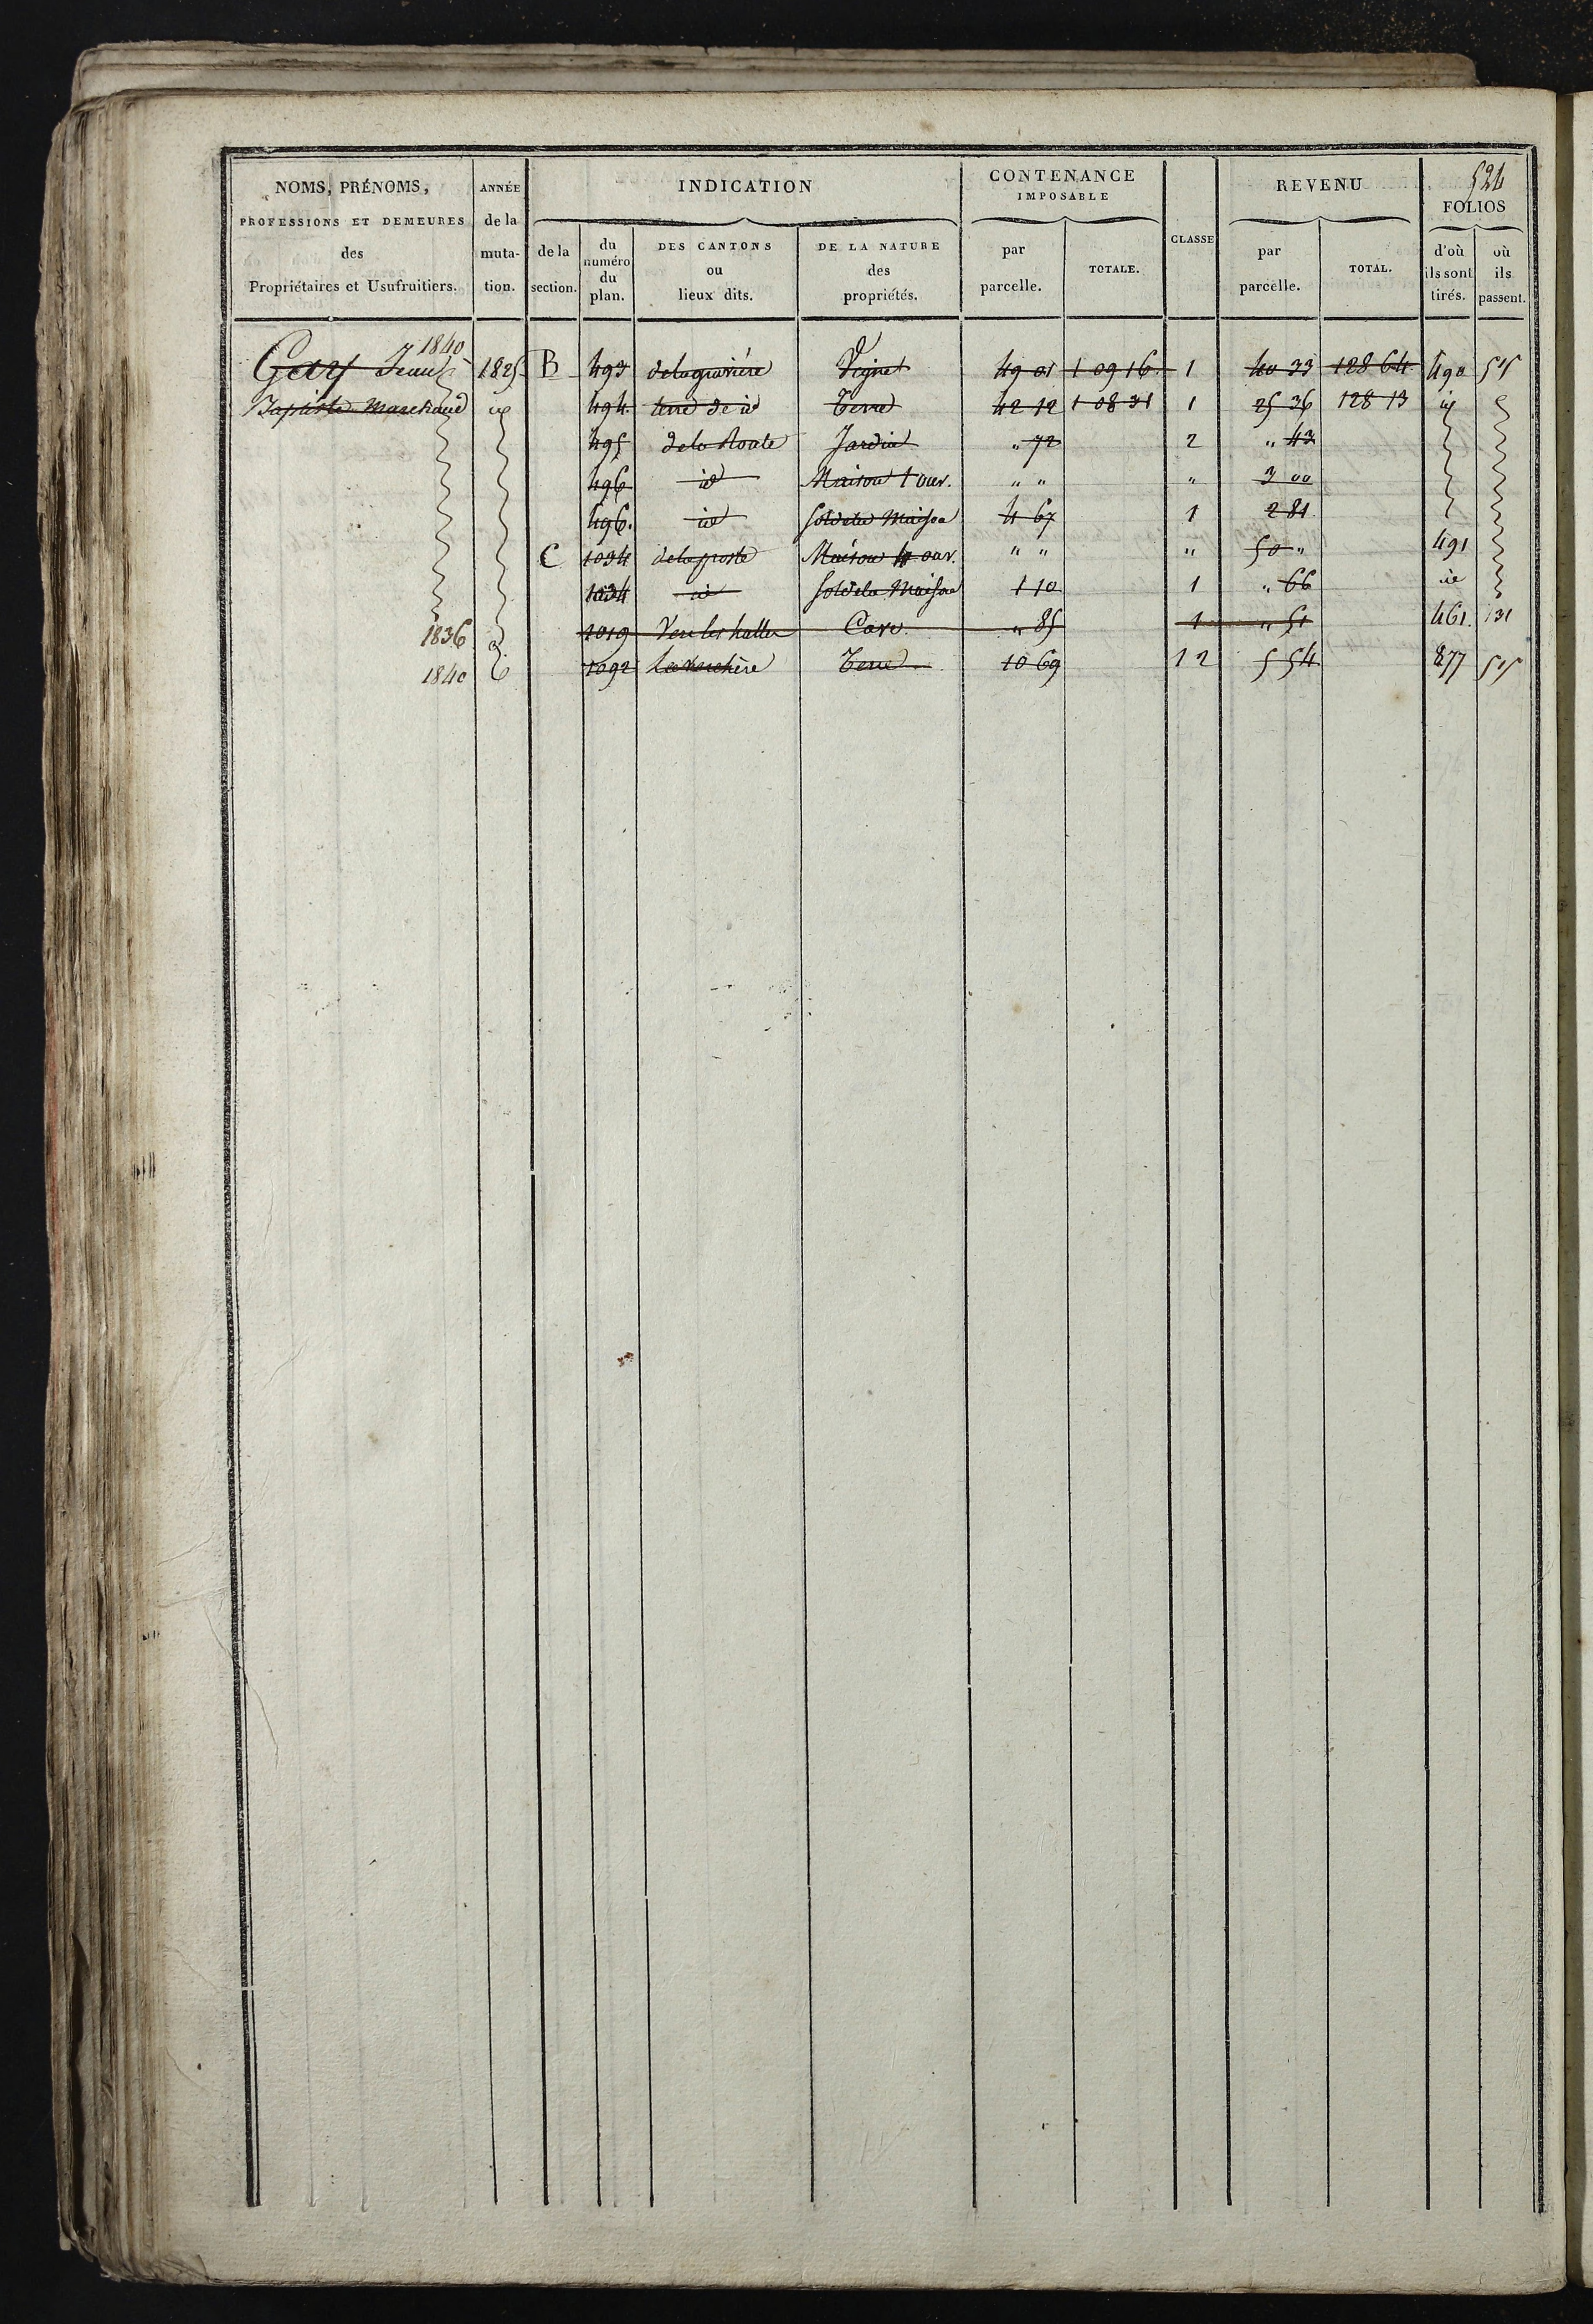 524
NOMS, PRÉNOMS, PROFESSIONS ET DEMEURES des Propriétaires et Usufruitiers.
ANNÉE de la muta- tion.
INDICATION
de la section.
du numéro du plan.
DES CANTONS ou lieux dits.
DE LA NATURE des propriétés.
CONTENANCE IMPOSABLE
par parcelle.
TOTALE.
CLASSE
REVENU
par parcelle.
TOTAL.
FOLIOS
d'où ils sont tirés.
où ils passent.
1840
Gary Jean 1825 B 493 de la gravière Vigne 49 01 1 09 16 1 40 33 128 64 490 515
Baptiste Marchand id 494 terre de id Terre 42 12 1 08 31 1 25 36 128 13 id
495 de la Route Jardin " 72 2 " 43
496 id Maison 1 ouv. " " " 3 00
496. id Sol de la Maison 4 67 1 2 81
C 1034 de la poste Maison 4 ouv. " " " 50 " 491
1034 id Sol de la Maison 1 10 1 " 66 id
1836 1019 Vers les halles Cave " 85 1 " 51 461. 131
1840 1092 Terre 10 69 1 2 5 54 877 515